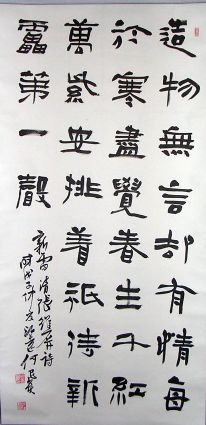 造物無言却有情每
於寒盡覺春生千紅
萬紫安排着祇待新
靁第一聲
新雷清張維屏詩